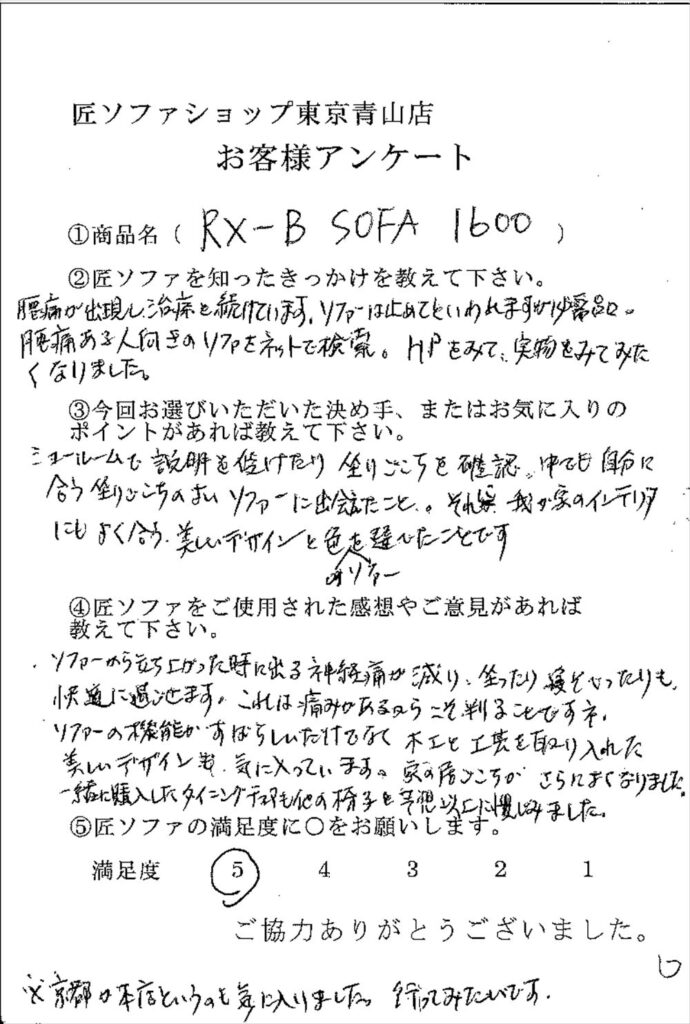 匠ソファショップ東京青山店
お客様アンケート
①商品名（ RX-B SOFA 1600 ）
②匠ソファを知ったきっかけを教えて下さい。
腰痛が出現し治療を続けています。ソファーは止めてといわれますが必需品。
腰痛ある人向きのソファをネットで検索。HPをみて、実物をみてみた
くなりました。
③今回お選びいただいた決め手、またはお気に入りの
ポイントがあれば教えて下さい。
ショールームで説明を受けたり坐りごこちを確認、中でも自分に
合う坐りごこちのよいソファーに出会えたこと。我が家のインテリア
にもよく合う、美しいデザインと色を選べたことです
のソファー
④匠ソファをご使用された感想やご意見があれば
教えて下さい。
ソファーから立ち上がった時に出る神経痛が減り、坐ったり寝そべったりも、
快適に過せます。これは痛みがあるからこそ判ることですネ。
ソファーの機能がすばらしいだけでなく木工と工芸を取り入れた
美しいデザインも気に入っています。家の居ごこちがさらによくなりました。
一緒に購入したダイニングチェアも他の椅子を予想以上に
⑤匠ソファの満足度に○をお願いします。
満足度 5 4 3 2 1
ご協力ありがとうございました。
※京都が本店というのも気に入りました。行ってみたいです。